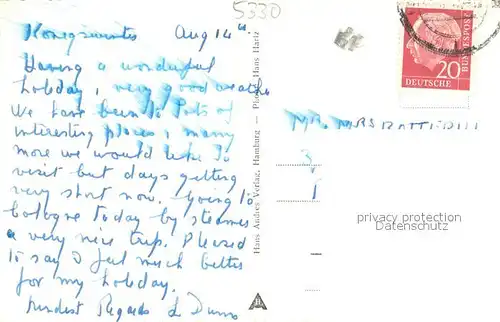 5330
Konigswinter Aug 14th
Having a wonderful
holiday, very good weather
We have been to lots of
interesting places, many
more we would like to
visit but days getting
very short now. Going to
Cologne today by steamer
a very nice trip. Pleased
to say I feel much better
for my holiday.
Kindest Regards L Dunn
Hans Andres Verlag, Hamburg — Photo: Hans Hartz
20
DEUTSCHE
BUNDESPOST
MR. MRS
privacy protection
Datenschutz